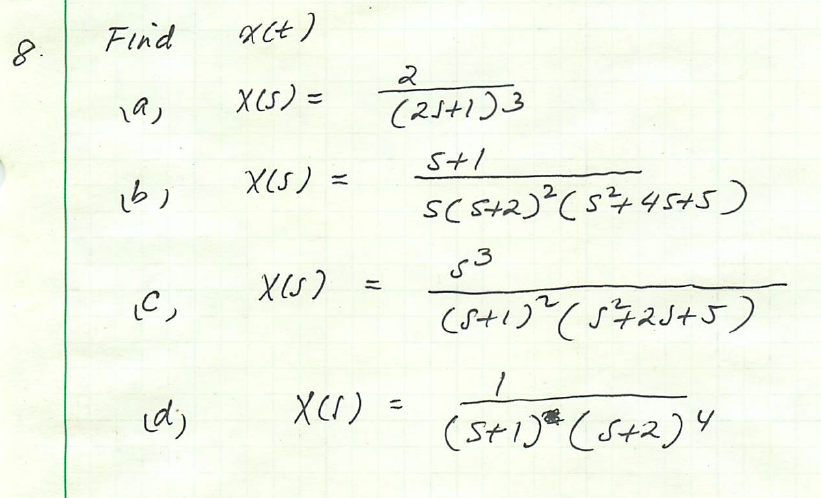 8. Find x(t)
(a) X(s) = 2 / (2s+1)3
(b) X(s) = s+1 / s(s+2)²(s²+4s+5)
(c) X(s) = s³ / (s+1)²(s²+2s+5)
(d) X(s) = 1 / (s+1)(s+2)4